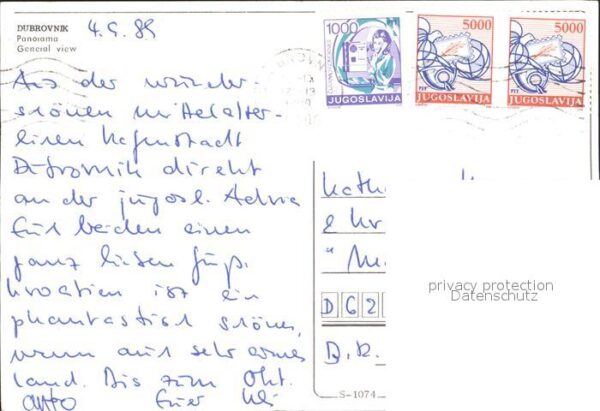 DUBROVNIK
Panorama
General view
4.9.89
1000
JUGOSLAVIJA
5000
PTT
JUGOSLAVIJA
5000
PTT
JUGOSLAVIJA
Aus der wunder-
schönen mittelalter-
lichen Hafenstadt
Dubrovnik direkt
an der jugosl. Adria
Euch beiden einen
ganz lieben Gruß.
Kroatien ist ein
phantastisch schönes,
wenn auch sehr armes
Land. Bis zum Okt.
Euer
Kath
&
"
D 6 2
S-1074
privacy protection
Datenschutz